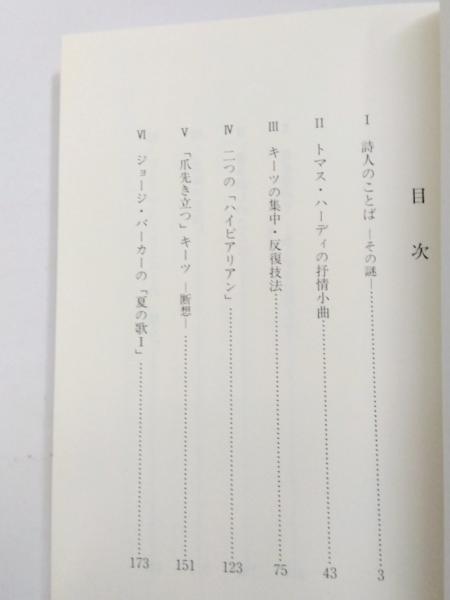 目次
I 詩人のことば ―その謎― 3
II トマス・ハーディの抒情小曲 43
III キーツの集中・反復技法 75
IV 二つの「ハイピアリアン」 123
V 「爪先き立つ」キーツ ―断想― 151
VI ジョージ・バーカーの「夏の歌I」 173